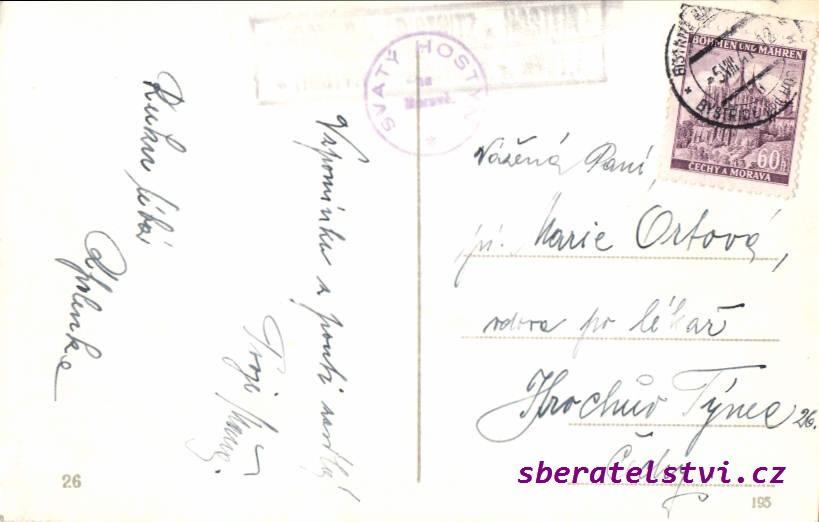 SVATÝ HOSTÝN
na
Moravě.
BÖHMEN UND MÄHREN
60 h
ČECHY A MORAVA
Vzpomínku z pouti zasílá
Ruku líbá
Vážená Paní,
pí. Marie Ortová,
vdova po lékaři
Hrochův Týnec 26.
Čechy
26
195
sberatelstvi.cz